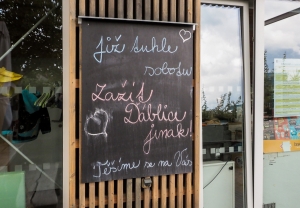 již tuhle
sobotu
Zažít
Ďáblice
jinak!
Těšíme se na Vás